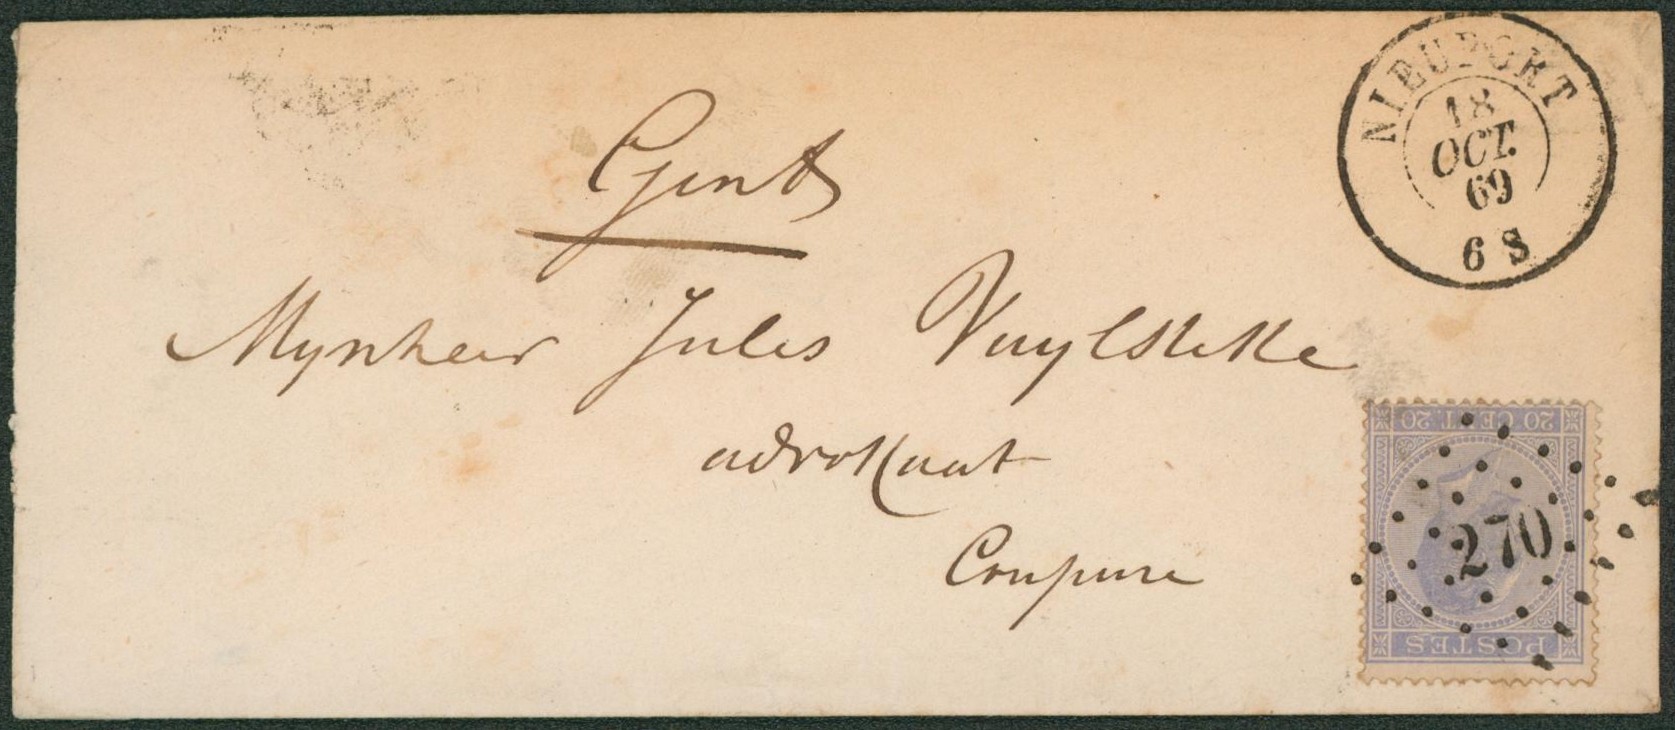 NIEUPORT
18
OCT.
69
6 S
Gent
Mynheer Jules Vuylsteke
advokaat
Coupure
20 CENT. 20
270
POSTES